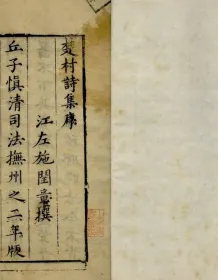 楚村詩集序
江左施閏章撰
丘子慎清司法撫州之二年版